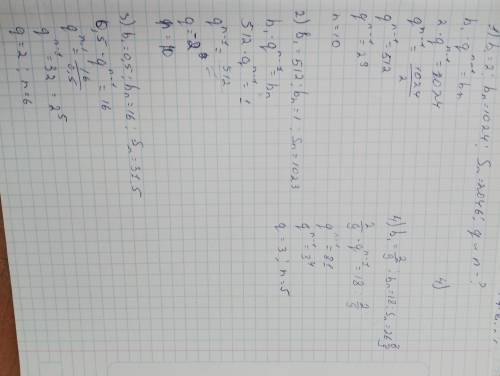 1) b₁ = 2; bₙ = 1024; Sₙ = 2046; q - n - ?
b₁ · qⁿ⁻¹ = bₙ
2 · qⁿ⁻¹ = 1024
qⁿ⁻¹ = 1024/2
qⁿ⁻¹ = 512
qⁿ⁻¹ = 2⁹
n = 10
2) b₁ = 512; bₙ = 1; Sₙ = 1023
b₁ · qⁿ⁻¹ = bₙ
512 · qⁿ⁻¹ = 1
qⁿ⁻¹ = 1/512
n = 10
3) b₁ = 0,5; bₙ = 16; Sₙ = 31,5
0,5 · qⁿ⁻¹ = 16
qⁿ⁻¹ = 16/0,5
qⁿ⁻¹ = 32 = 2⁵
q = 2; n = 6
4)
4) b₁ = 2/9; bₙ = 18; Sₙ = 26 8/9
2/9 · qⁿ⁻¹ = 18
qⁿ⁻¹ = 81
qⁿ⁻¹ = 3⁴
q = 3; n = 5